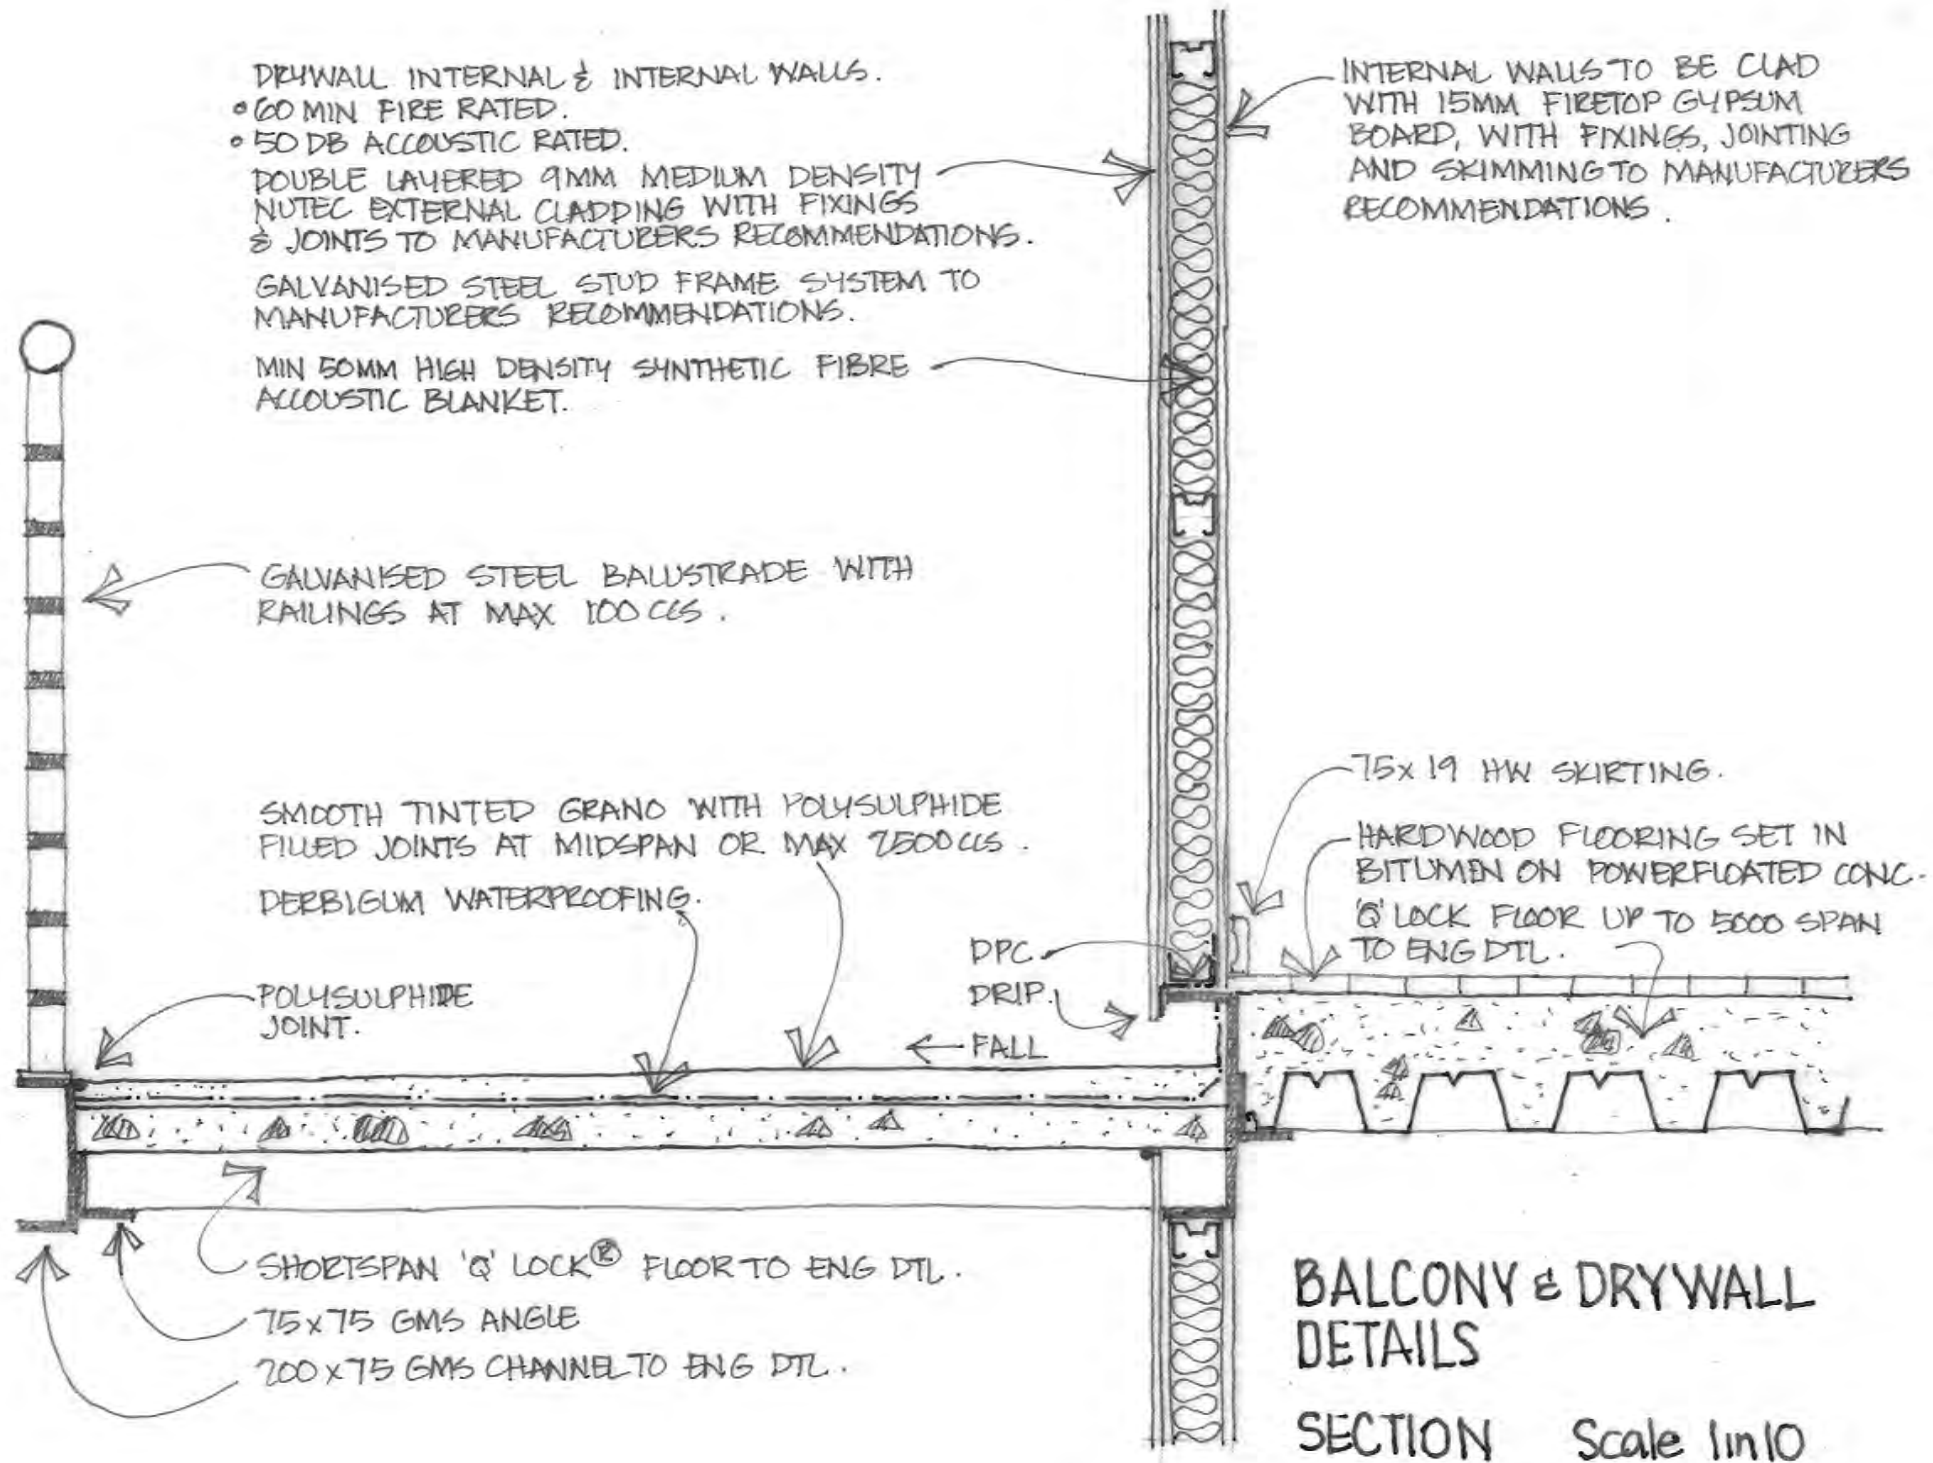 DRYWALL INTERNAL & INTERNAL WALLS.
• 60 MIN FIRE RATED.
• 50 DB ACCOUSTIC RATED.
DOUBLE LAYERED 9MM MEDIUM DENSITY
NUTEC EXTERNAL CLADDING WITH FIXINGS
& JOINTS TO MANUFACTURERS RECOMMENDATIONS.
GALVANISED STEEL STUD FRAME SYSTEM TO
MANUFACTURERS RECOMMENDATIONS.
MIN 50MM HIGH DENSITY SYNTHETIC FIBRE
ACCOUSTIC BLANKET.
INTERNAL WALLS TO BE CLAD
WITH 15MM FIRETOP GYPSUM
BOARD, WITH FIXINGS, JOINTING
AND SKIMMING TO MANUFACTURERS
RECOMMENDATIONS.
GALVANISED STEEL BALUSTRADE WITH
RAILINGS AT MAX 100 CCS.
SMOOTH TINTED GRANO WITH POLYSULPHIDE
FILLED JOINTS AT MIDSPAN OR MAX 2500 CCS.
DERBIGUM WATERPROOFING.
POLYSULPHIDE
JOINT.
DPC.
DRIP.
← FALL
75x19 HW SKIRTING.
HARDWOOD FLOORING SET IN
BITUMEN ON POWERFLOATED CONC.
'Q' LOCK FLOOR UP TO 5000 SPAN
TO ENG DTL.
SHORTSPAN 'Q' LOCK® FLOOR TO ENG DTL.
75x75 GMS ANGLE
200x75 GMS CHANNEL TO ENG DTL.
BALCONY & DRYWALL
DETAILS
SECTION Scale 1in10